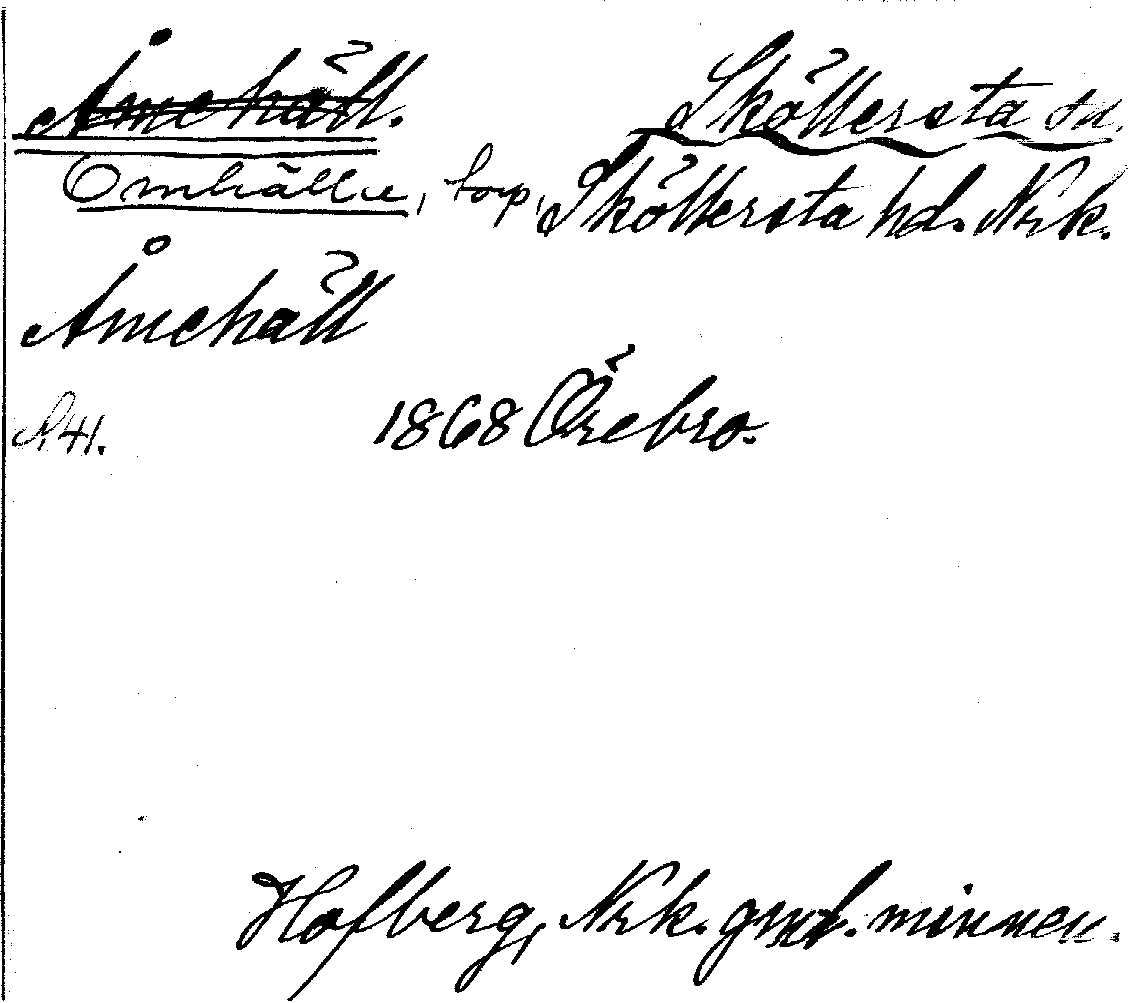 Åmehäll. Sköllersta sn.
Omhälle, torp, Sköllersta hd. Nrk.
Åmehäll
41. 1868 Örebro.
Hofberg, Nrk. gml. minnen.